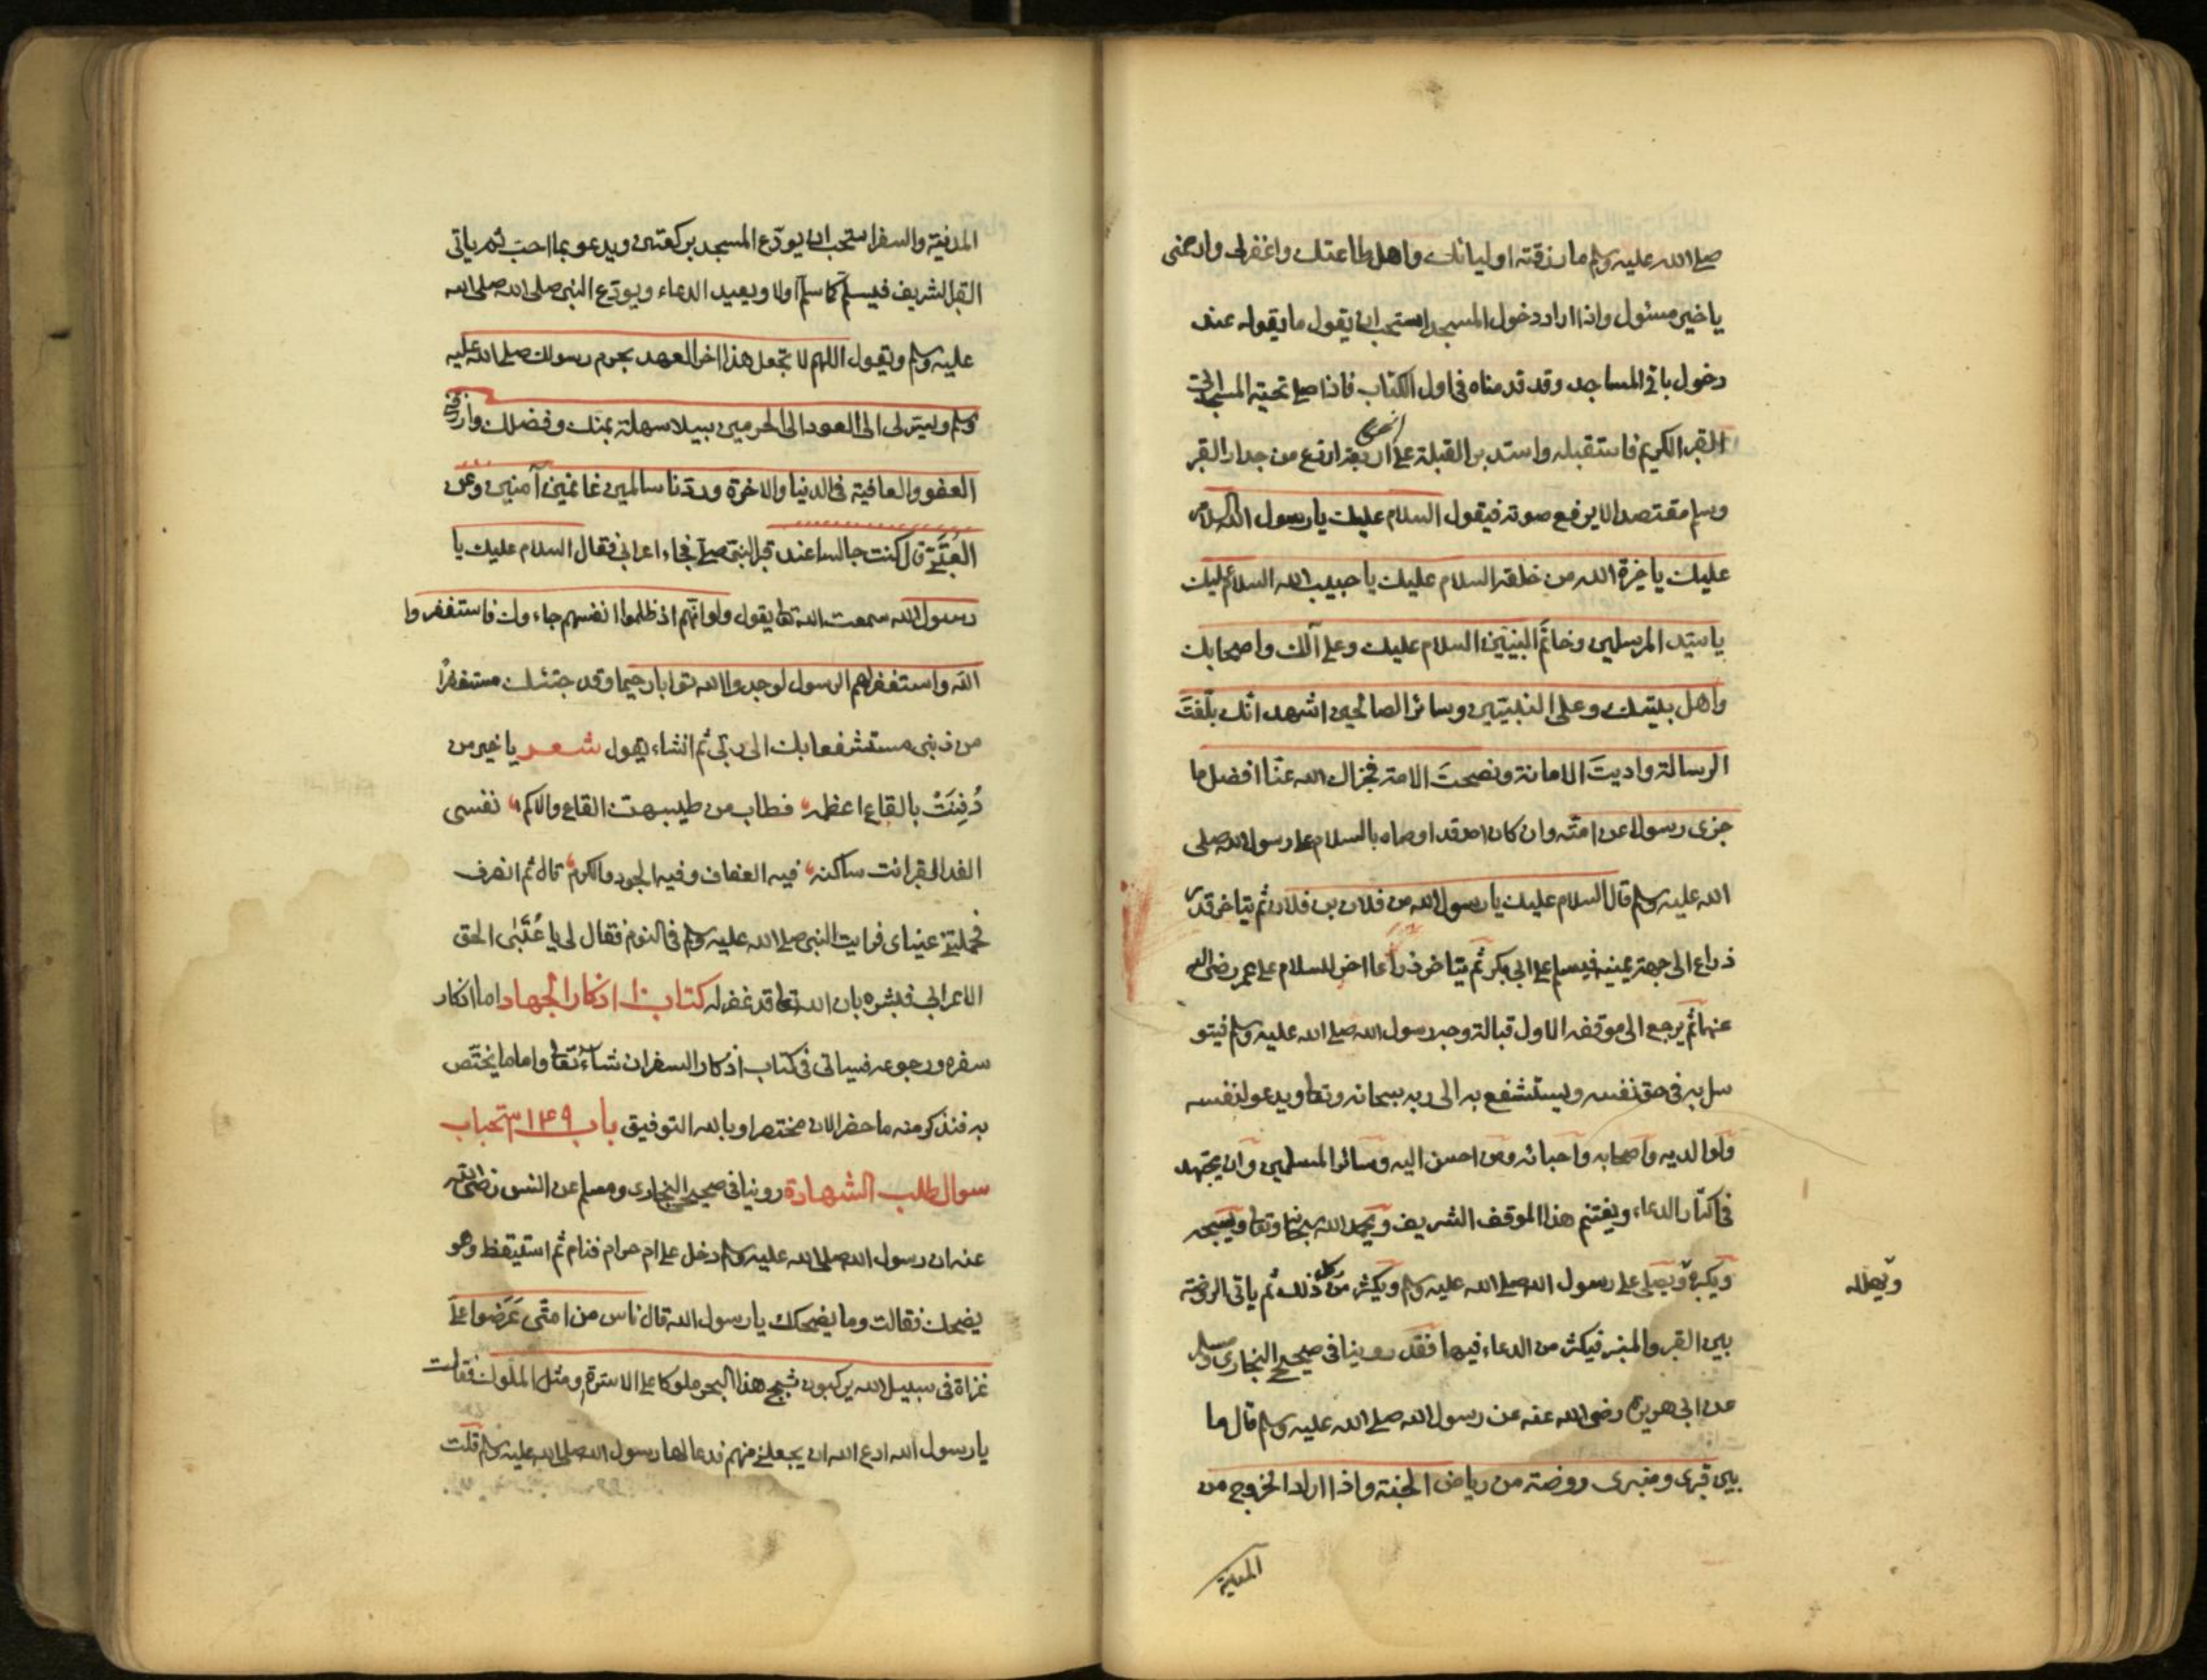 صلى الله عليه وسلم ما رزقته اولياءك واهل طاعتك واغفرلى وارحمنى
يا خير مسئول واذا اراد دخول المسجد استحب ان يقول ما يقوله عند
دخول باقى المساجد وقد قدمناه فى اول الكتاب فاذا صلى تحية المسجد اتى
القبر الكريم فاستقبله واستدبر القبلة على اربعة اذرع من جدار القبر
وسلم مقتصدا لا يرفع صوته فيقول السلام عليك يا رسول الله السلام
عليك يا خيرة الله من خلقه السلام عليك يا حبيب الله السلام عليك
يا سيد المرسلين وخاتم النبيين السلام عليك وعلى آلك واصحابك
واهل بيتك وعلى النبيين وسائر الصالحين اشهد انك بلّغت
الرسالة واديت الامانة ونصحت الامة فجزاك الله عنا افضل ما
جزى رسولا عن امته وان كان احد قد اوصاه بالسلام على رسول الله صلى
الله عليه وسلم قال السلام عليك يا رسول الله من فلان بن فلان ثم يتاخر قدر
ذراع الى جهة يمينه فيسلم على ابى بكر ثم يتاخر ذراعا اخر للسلام على عمر رضى الله
عنهما ثم يرجع الى موقفه الاول قبالة وجه رسول الله صلى الله عليه وسلم فيتو
سل به فى حق نفسه ويستشفع به الى ربه سبحانه وتعا ويدعو لنفسه
ولوالديه واصحابه واحبائه ومن احسن اليه وسائر المسلمين وان يجتهد
فى اكثار الدعاء ويغتنم هذا الموقف الشريف ويحمد الله سبحانه وتعا ويسبحه
ويكبره ويصلى على رسول الله صلى الله عليه وسلم ويكثر من كل ذلك ثم ياتى الروضة
ويهلله
بين القبر والمنبر فيكثر من الدعاء فيها فقد روينا فى صحيح البخارى ومسلم
عن ابى هريرة رضى الله عنه عن رسول الله صلى الله عليه وسلم قال ما
بين قبرى ومنبرى روضة من رياض الجنة واذا اراد الخروج من
المدينة
المدينة والسفر استحب ان يودّع المسجد بركعتين ويدعو بما احب ثم ياتى
القبر الشريف فيسلم كما سلم اولا ويعيد الدعاء ويودّع النبى صلى الله صلى الله
عليه وسلم ويقول اللهم لا تجعل هذا اخر العهد بحرم رسولك صلى الله عليه
وسلم ويسّر لى الى العود الى الحرمين سبيلا سهلة بمنك وفضلك وارزقنى
العفو والعافية فى الدنيا والاخرة وردّنا سالمين غانمين آمنين وعن
العُتَبّى قال كنت جالسا عند قبر النبى صلعم فجاء اعرابى فقال السلام عليك يا
رسول الله سمعت الله تعا يقول ولو انّهم اذ ظلموا انفسهم جاءوك فاستغفروا
الله واستغفر لهم الرسول لوجدوا الله توابا رحيما وقد جئتك مستغفرًا
من ذنبى مستشفعا بك الى ربّى ثم انشاء يقول شعر يا خير من
دُفِنَتْ بالقاع اعظمه فطاب من طيبهن القاع والاكم نفسى
الفدا لقبر انت ساكنه فيه العفاف وفيه الجود والكرم قال ثم انصرف
فحملتنى عيناى فرايت النبى صلى الله عليه وسلم فى النوم فقال لى يا عُتَبّى الحق
الاعرابى فبشره بان الله تعا قد غفر له كتاب ١٠ اذكار الجهاد اما اذكار
سفره ورجوعه فسياتى فى كتاب اذكار السفر ان شاء تعا واما ما يختّص
به فنذكر منه ما حضر الان مختصرا وبالله التوفيق باب ١٤٩ استحباب
سوال طلب الشهادة روينا فى صحيح البخارى ومسلم عن انس رضى الله
عنه ان رسول الله صلى الله عليه وسلم دخل على ام حرام فنام ثم استيقظ وهو
يضحك فقالت وما يضحكك يا رسول الله قال ناس من امتّى عَرَضوا علىّ
غزاة فى سبيل الله يركبون ثبج هذا البحر ملوكا على الاسرّة ومثل الملوك فقالت
يا رسول الله ادع الله ان يجعلنى منهم فدعا لها رسول الله صلى الله عليه وسلم قلت